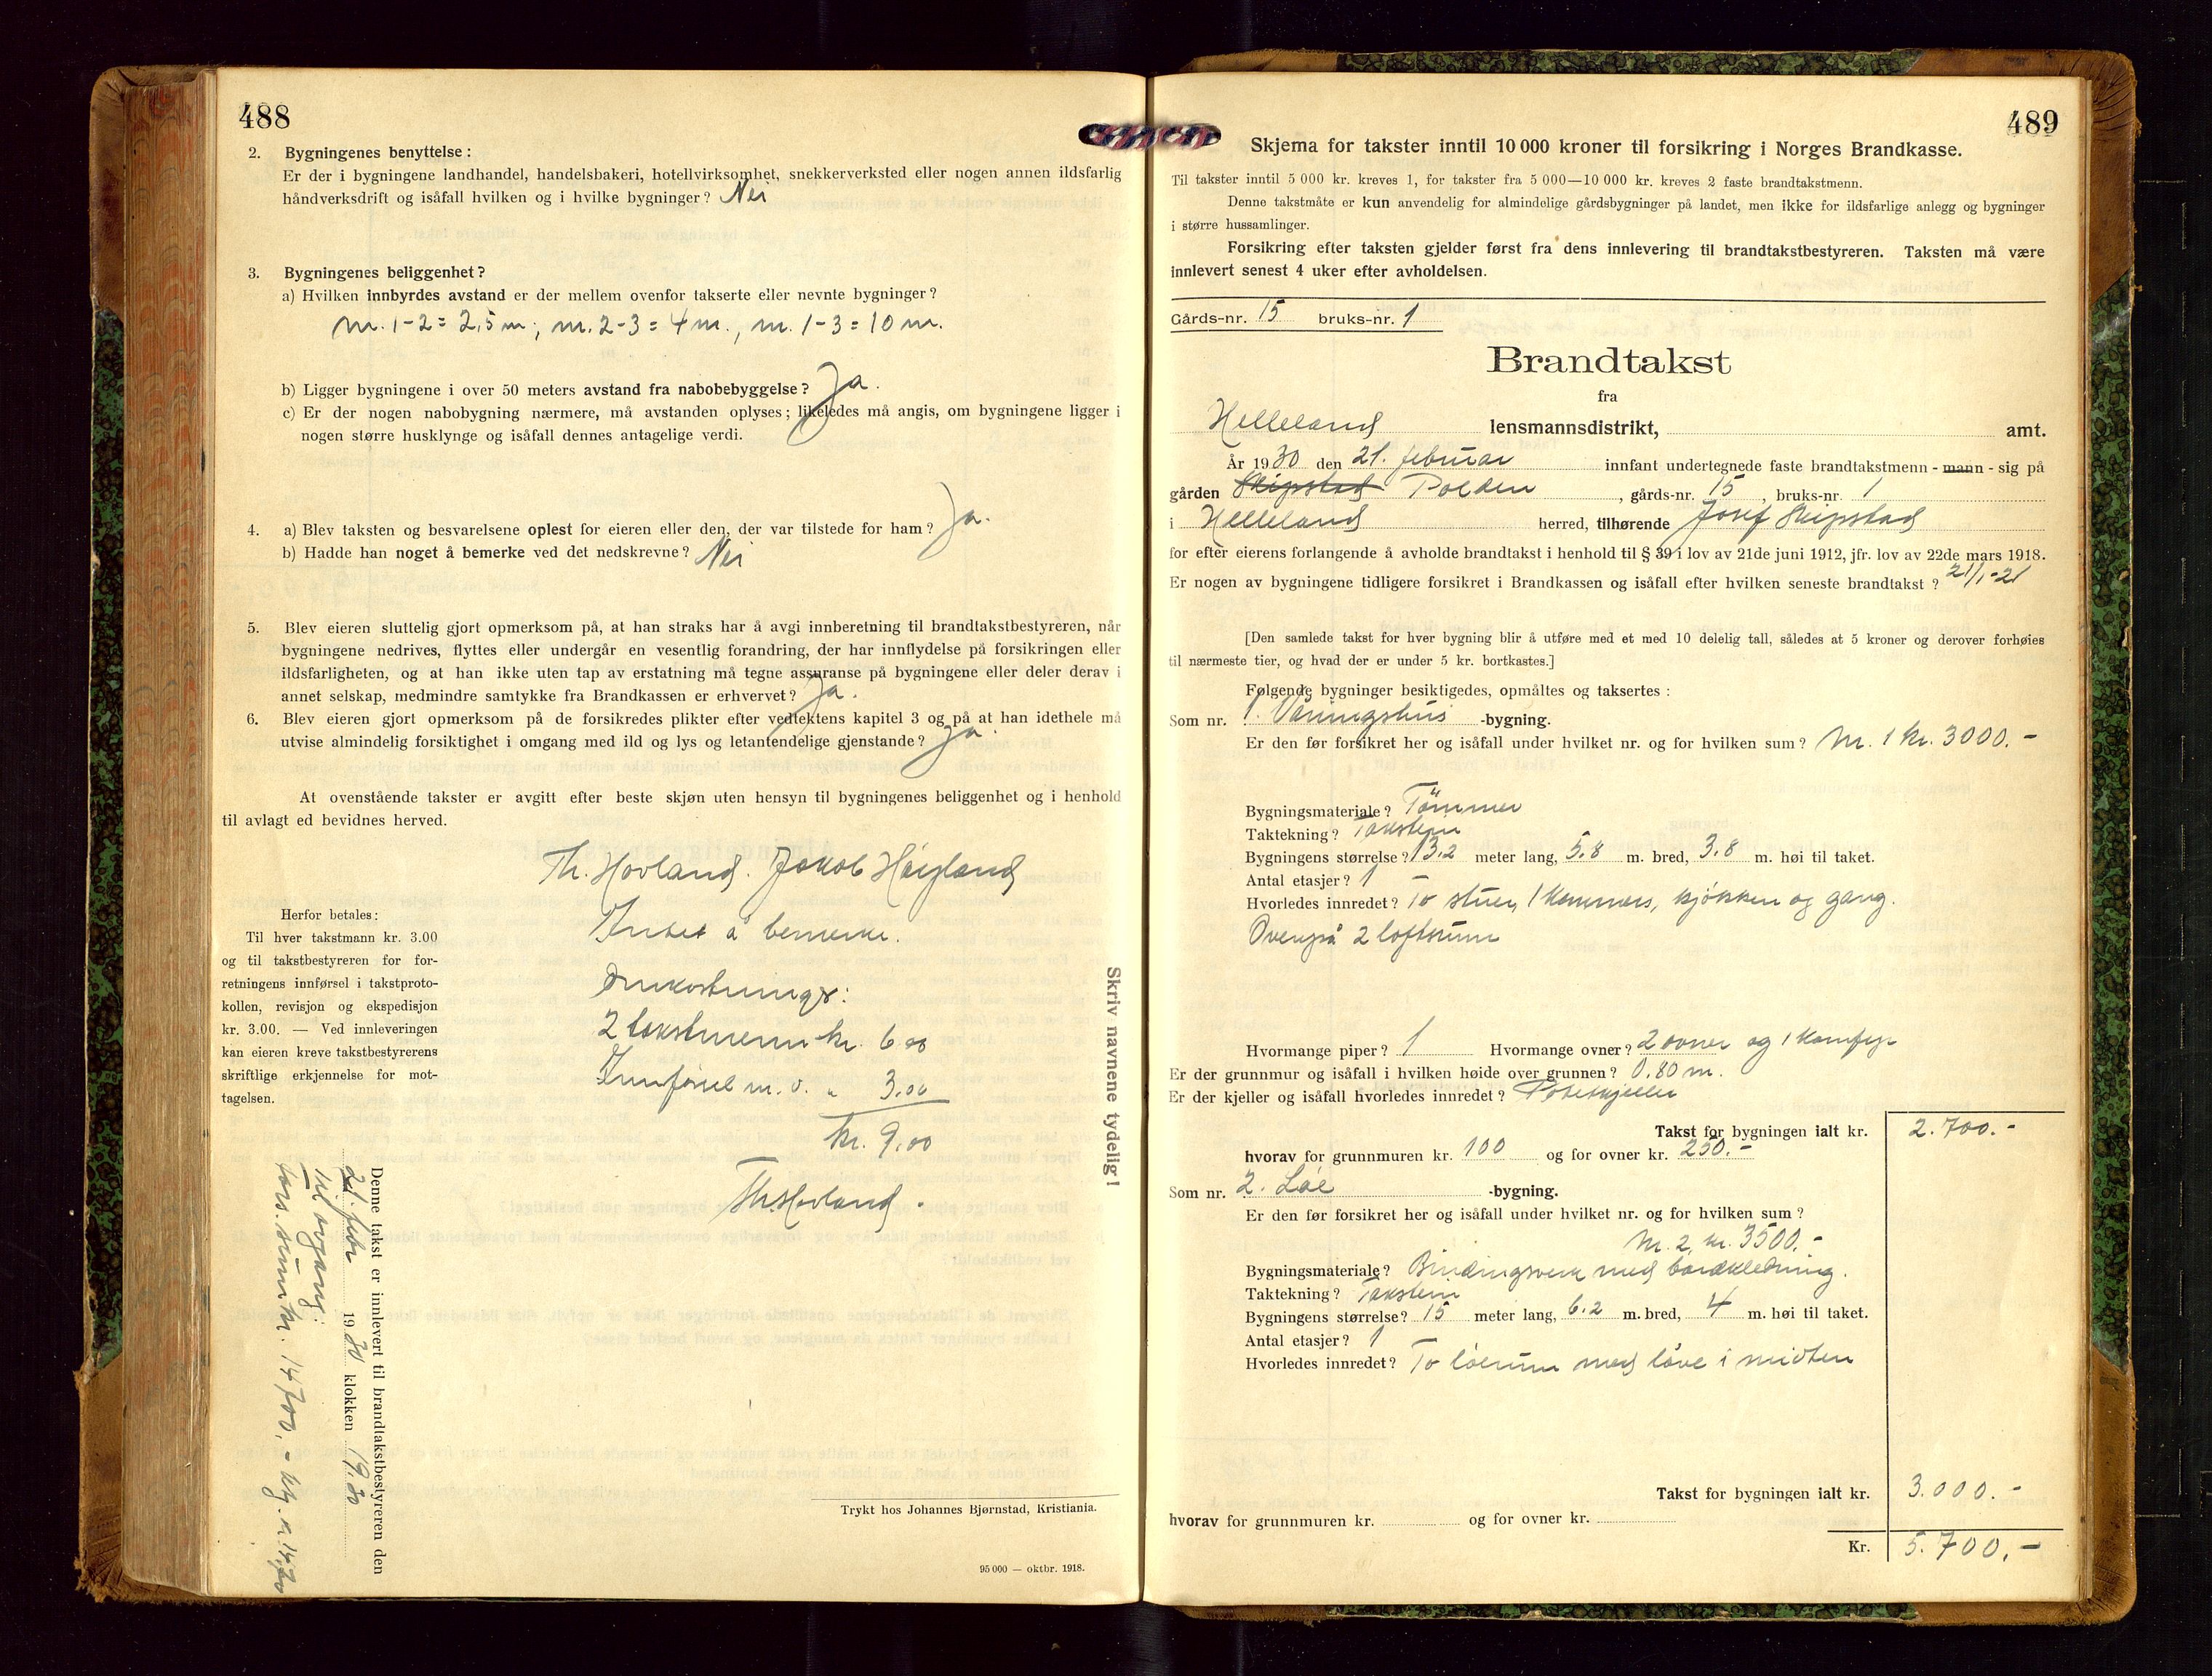 488
2. Bygningenes benyttelse:
Er der i bygningene landhandel, handelsbakeri, hotellvirksomhet, snekkerverksted eller nogen annen ildsfarlig
håndverksdrift og isåfall hvilken og i hvilke bygninger? Nei
3. Bygningenes beliggenhet?
a) Hvilken innbyrdes avstand er der mellem ovenfor takserte eller nevnte bygninger?
nr. 1-2 = 2,5 m; nr. 2-3 = 4 m., nr. 1-3 = 10 m.
b) Ligger bygningene i over 50 meters avstand fra nabobebyggelse? Ja.
c) Er der nogen nabobygning nærmere, må avstanden oplyses; likeledes må angis, om bygningene ligger i
nogen større husklynge og isåfall dennes antagelige verdi.
4. a) Blev taksten og besvarelsene oplest for eieren eller den, der var tilstede for ham? Ja.
b) Hadde han noget å bemerke ved det nedskrevne? Nei
5. Blev eieren sluttelig gjort opmerksom på, at han straks har å avgi innberetning til brandtakstbestyreren, når
bygningene nedrives, flyttes eller undergår en vesentlig forandring, der har innflydelse på forsikringen eller
ildsfarligheten, og at han ikke uten tap av erstatning må tegne assuranse på bygningene eller deler derav i
annet selskap, medmindre samtykke fra Brandkassen er erhvervet? Ja.
6. Blev eieren gjort opmerksom på de forsikredes plikter efter vedtektens kapitel 3 og på at han idethele må
utvise almindelig forsiktighet i omgang med ild og lys og letantendelige gjenstande? Ja.
At ovenstående takster er avgitt efter beste skjøn uten hensyn til bygningenes beliggenhet og i henhold
til avlagt ed bevidnes herved.
Th. Hovland. Jakob Høigland
Intet å bemerke.
Omkostninger:
2 takstmenn kr. 6.00
Innførsel m. v. " 3.00
kr. 9.00
Th. Hovland.
Herfor betales:
Til hver takstmann kr. 3.00
og til takstbestyreren for for-
retningens innførsel i takstproto-
kollen, revisjon og ekspedisjon
kr. 3.00. — Ved innleveringen
kan eieren kreve takstbestyrerens
skriftlige erkjennelse for mot-
tagelsen.
Denne takst er innlevert til brandtakstbestyreren den
21. febr 1930 klokken 19.30
Til avgang:
fors.sum kr. 14700.-
Skriv navnene tydelig!
Trykt hos Johannes Bjørnstad, Kristiania.
95 000 — oktbr. 1918.
489
Skjema for takster inntil 10 000 kroner til forsikring i Norges Brandkasse.
Til takster inntil 5 000 kr. kreves 1, for takster fra 5 000—10 000 kr. kreves 2 faste brandtakstmenn.
Denne takstmåte er kun anvendelig for almindelige gårdsbygninger på landet, men ikke for ildsfarlige anlegg og bygninger
i større hussamlinger.
Forsikring efter taksten gjelder først fra dens innlevering til brandtakstbestyreren. Taksten må være
innlevert senest 4 uker efter avholdelsen.
Gårds-nr. 15 bruks-nr. 1
Brandtakst
fra
Helleland lensmannsdistrikt, amt.
År 1930 den 21. februar innfant undertegnede faste brandtakstmenn - mann - sig på
gården Skipstad Polden, gårds-nr. 15, bruks-nr. 1
i Helleland herred, tilhørende Josef Skipstad
for efter eierens forlangende å avholde brandtakst i henhold til § 39 i lov av 21de juni 1912, jfr. lov av 22de mars 1918.
Er nogen av bygningene tidligere forsikret i Brandkassen og isåfall efter hvilken seneste brandtakst? 21/1-21
[Den samlede takst for hver bygning blir å utføre med et med 10 delelig tall, således at 5 kroner og derover forhøies
til nærmeste tier, og hvad der er under 5 kr. bortkastes.]
Følgende bygninger besiktigedes, opmåltes og taksertes:
Som nr. 1. Våningshus -bygning.
Er den før forsikret her og isåfall under hvilket nr. og for hvilken sum? nr. 1 kr. 3000.-
Bygningsmateriale? Tømmer
Taktekning? Takstein
Bygningens størrelse? 13,2 meter lang, 5.8 m. bred, 3.8 m. høi til taket.
Antal etasjer? 1
Hvorledes innredet? To stuer, 1 kammers, kjøkken og gang.
Ovenpå 2 loftsrum
Hvormange piper? 1 Hvormange ovner? 2 ovner og 1 komfyr
Er der grunnmur og isåfall i hvilken høide over grunnen? 0,80 m.
Er der kjeller og isåfall hvorledes innredet? Potetkjeller
Takst for bygningen ialt kr. 2.700.-
hvorav for grunnmuren kr. 100 og for ovner kr. 250.-
Som nr. 2. Løe -bygning.
Er den før forsikret her og isåfall under hvilket nr. og for hvilken sum?
Nr. 2, kr. 3500.-
Bygningsmateriale? Bindingsverk med bordkledning.
Taktekning? Takstein
Bygningens størrelse? 15 meter lang, 6.2 m. bred, 4 m. høi til taket.
Antal etasjer? 1
Hvorledes innredet? To løerum med låve i midten
Takst for bygningen ialt kr. 3.000.-
hvorav for grunnmuren kr. og for ovner kr.
Kr. 5.700,-